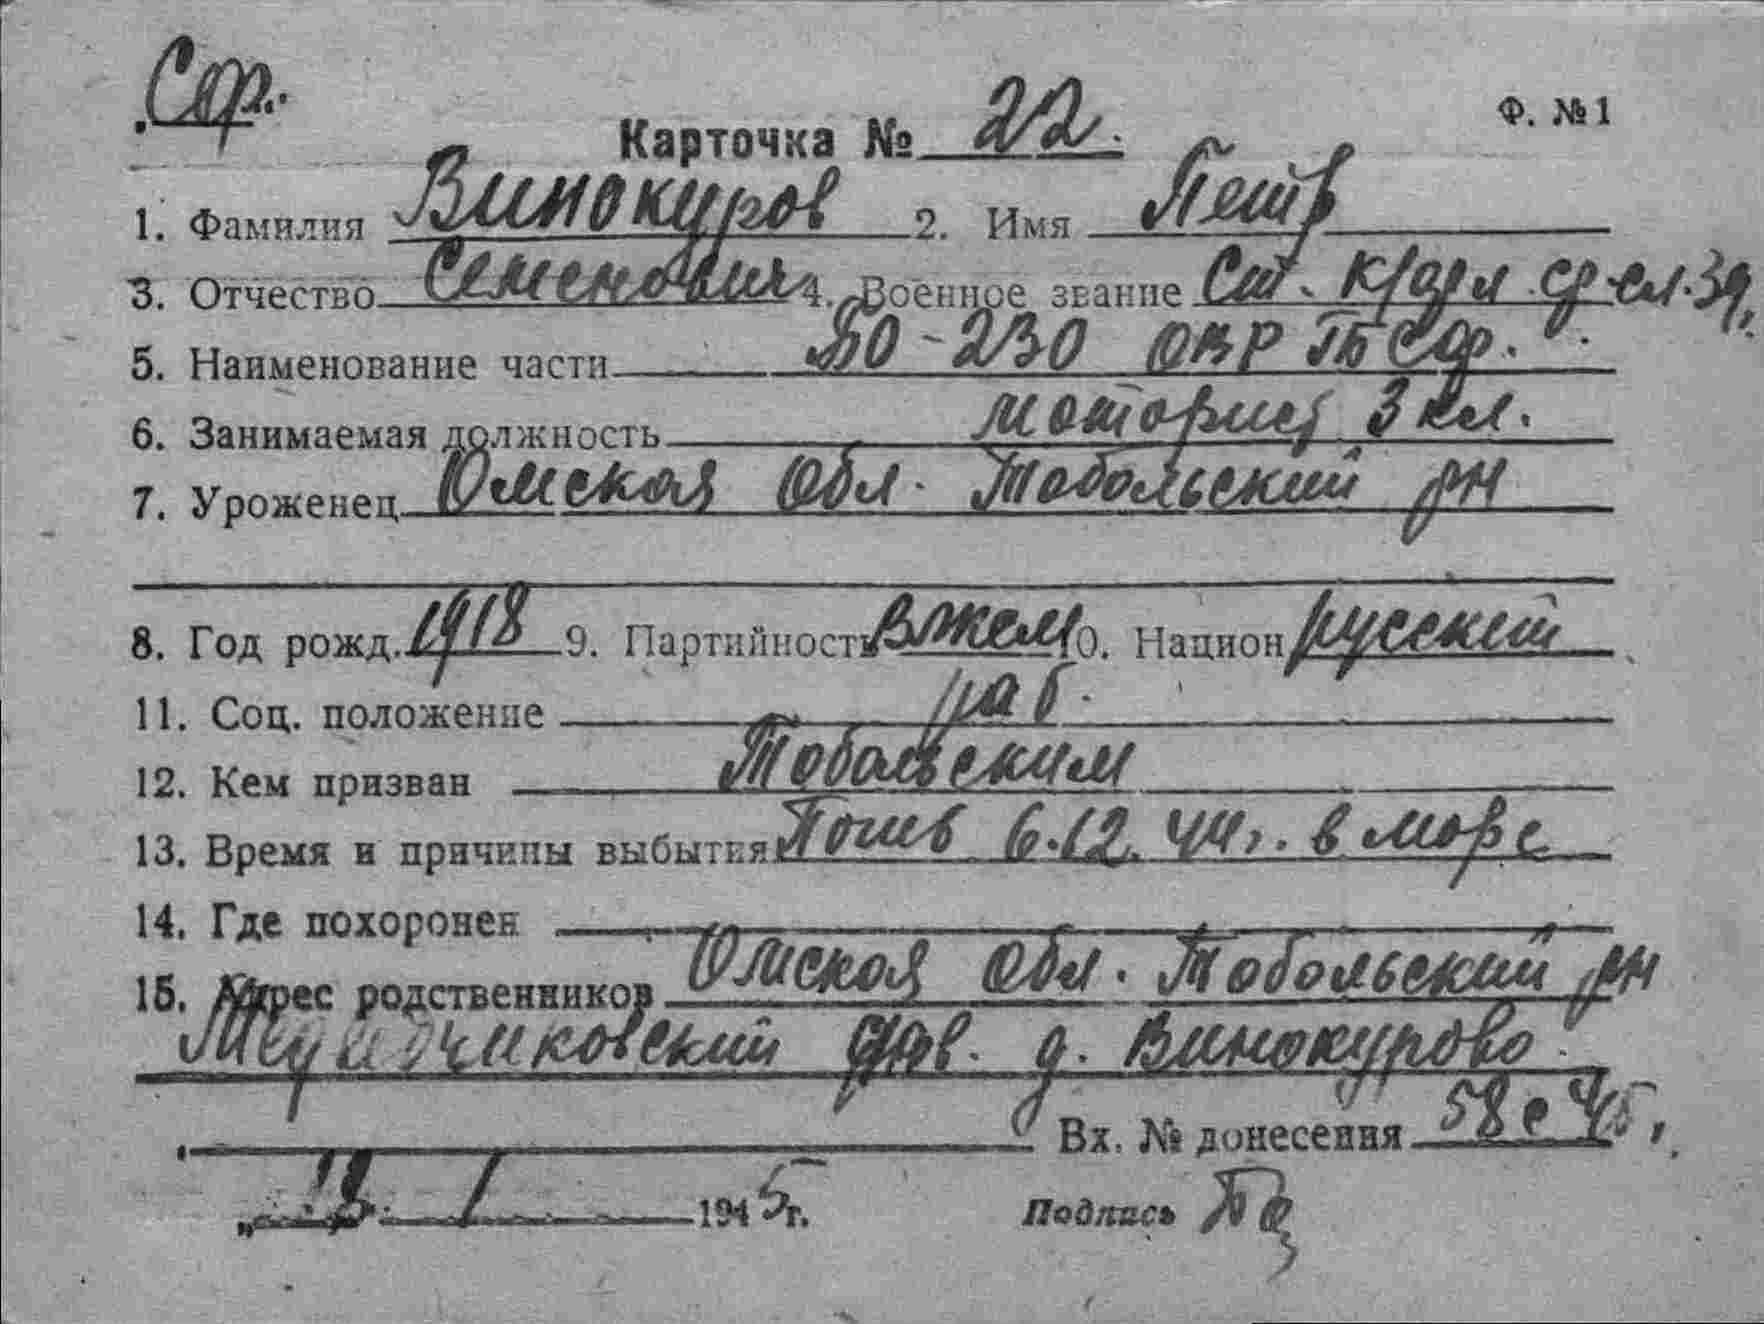 Ф. №1
Карточка № 22.
1. Фамилия Винокуров 2. Имя Петр
3. Отчество Семенович 4. Военное звание Ст. к/фл ср. сл. 39.
5. Наименование части БО-230 ОВР
6. Занимаемая должность моторист 3 кл.
7. Уроженец Омская обл. Тобольский рн
8. Год рожд. 1918 9. Партийность влксм 10. Национ русский
11. Соц. положение раб.
12. Кем призван Тобольским
13. Время и причины выбытия Погиб 6.12.44г. в море
14. Где похоронен
15. Адрес родственников Омская обл. Тобольский рн
д. Винокурово
Вх. № донесения 58с 45г.
„18 1 1945г. Подпись